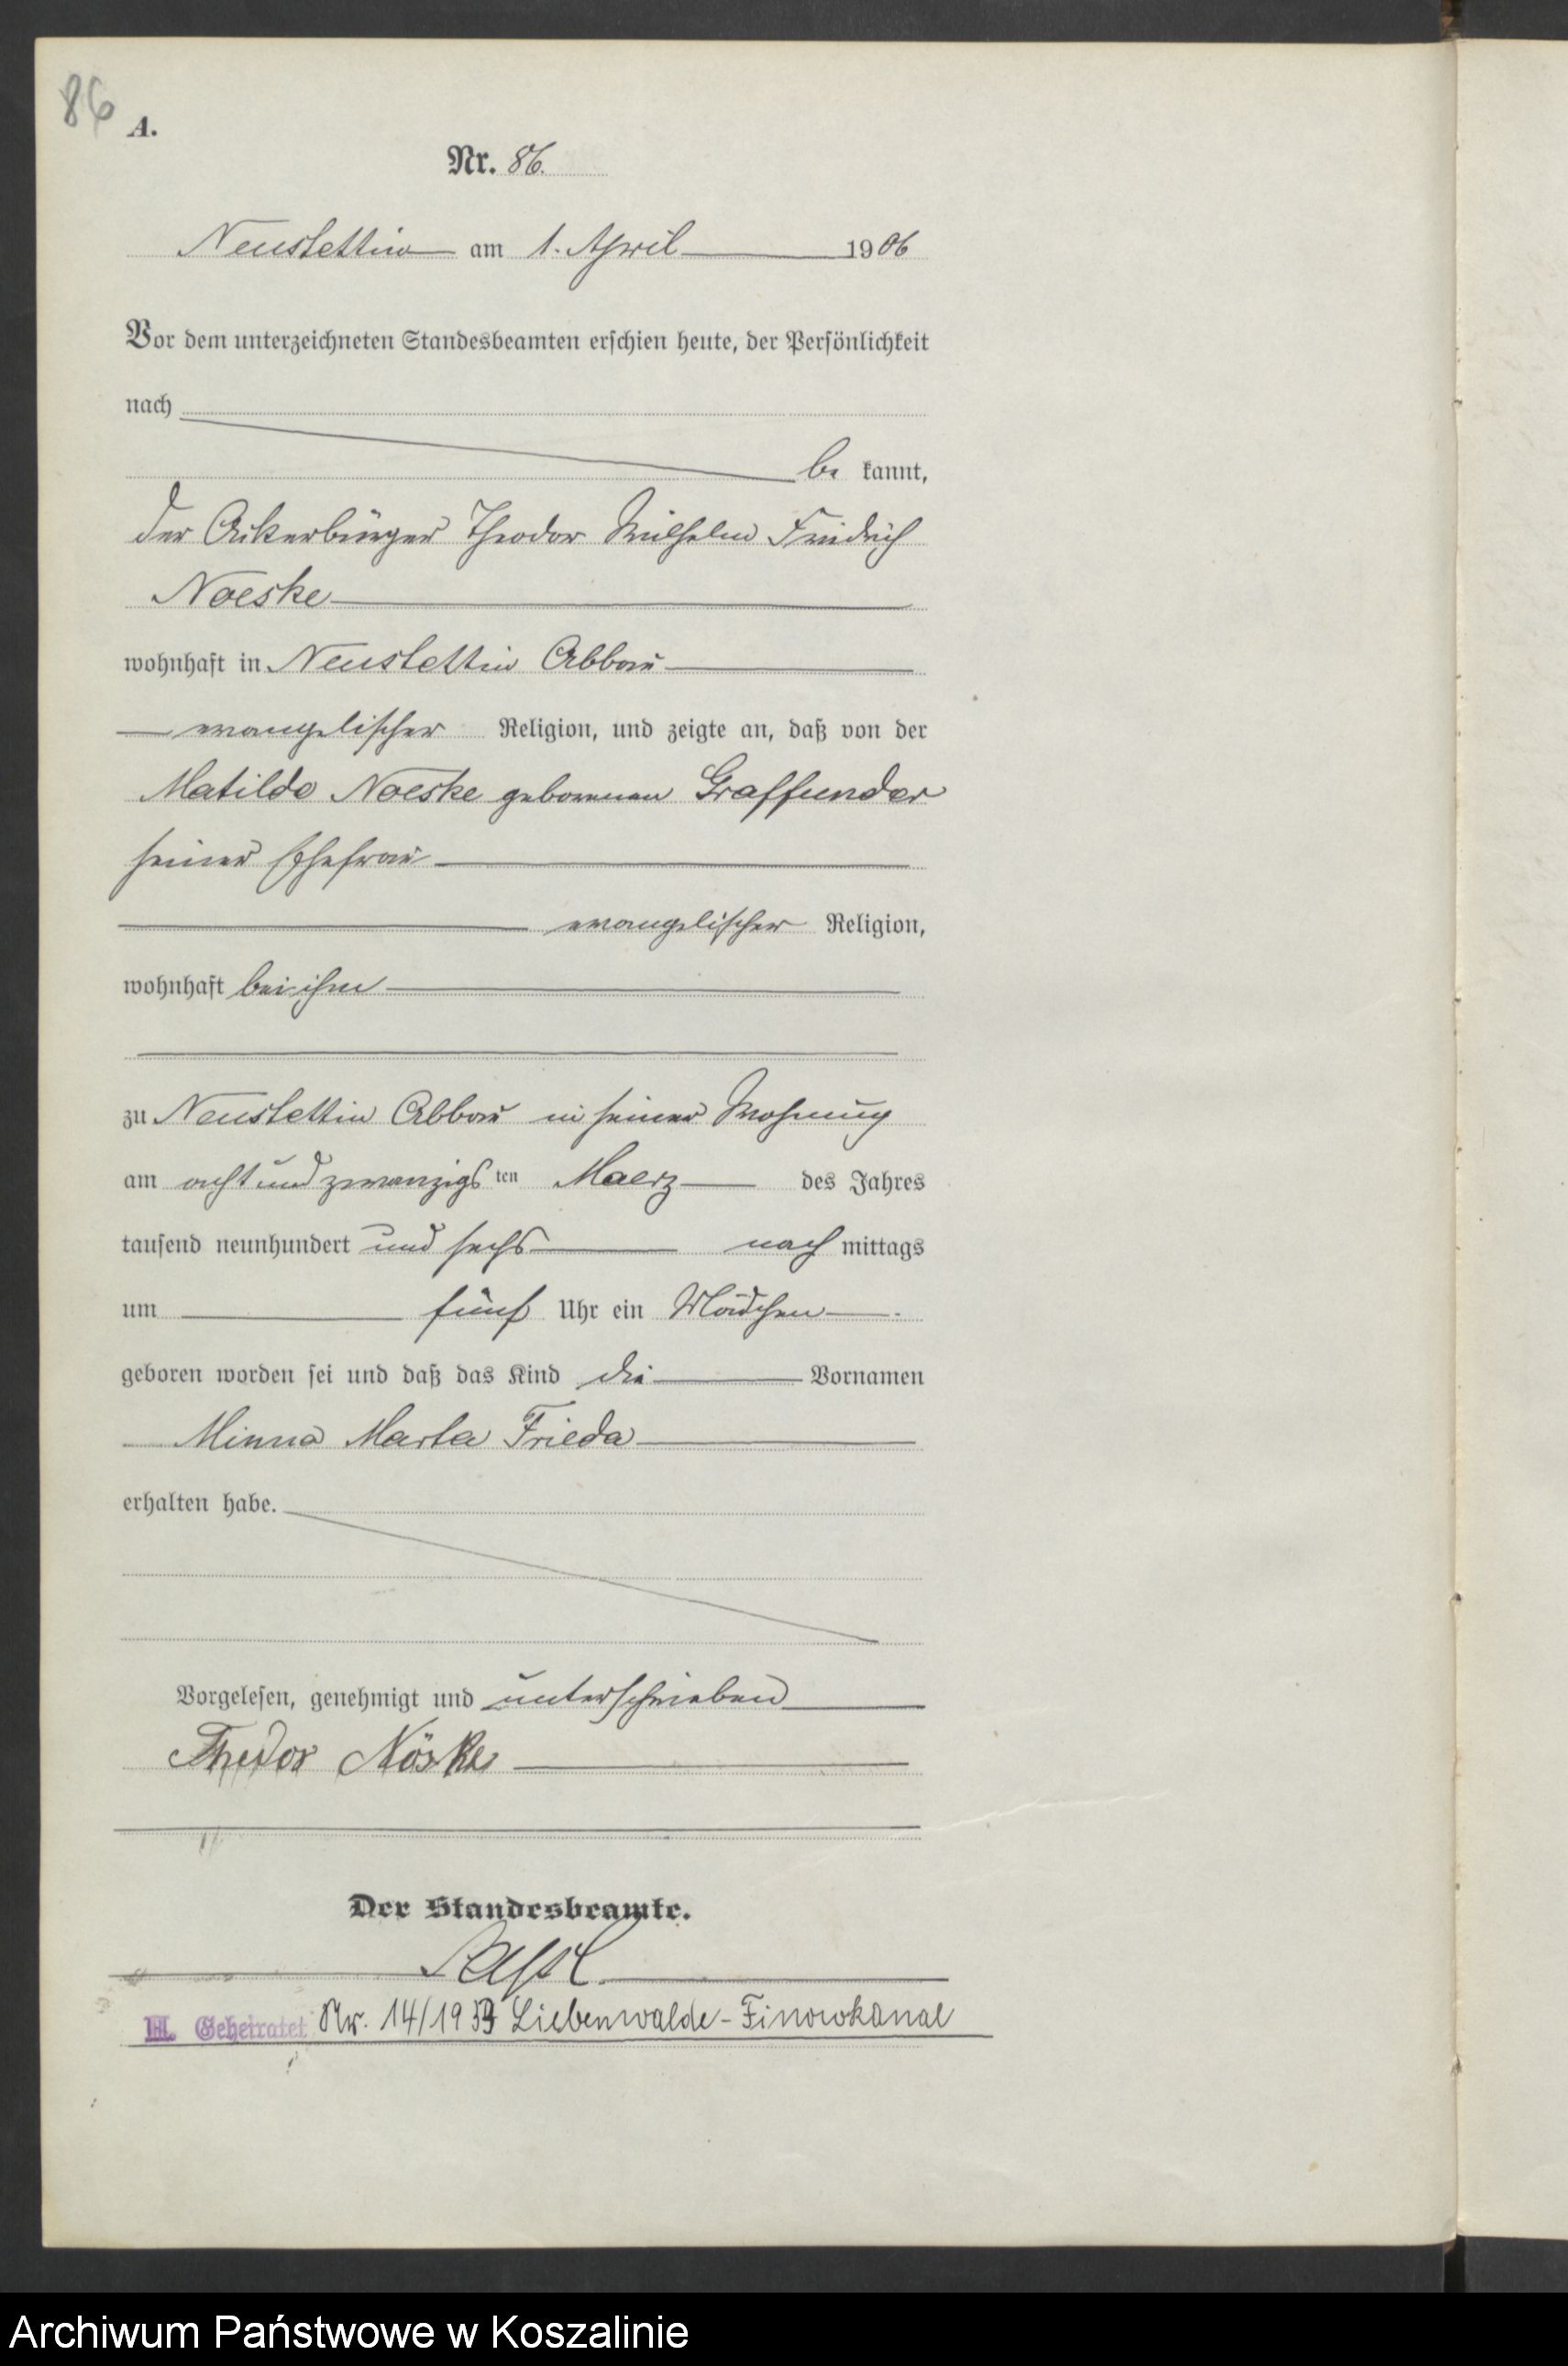 86
A.
Nr. 86.
Neustettin am 1. April 1906
Vor dem unterzeichneten Standesbeamten erschien heute, der Persönlichkeit
nach
be kannt,
der Ackerbürger Theodor Wilhelm Friedrich
Noeske
wohnhaft in Neustettin Abbau
evangelischer Religion, und zeigte an, daß von der
Matilde Noeske geborenen Graffunder
seiner Ehefrau
evangelischer Religion,
wohnhaft bei ihm
zu Neustettin Abbau in seiner Wohnung
am acht und zwanzigs ten Maerz des Jahres
tausend neunhundert und sechs nach mittags
um fünf Uhr ein Mädchen
geboren worden sei und daß das Kind die Vornamen
Minna Marta Frieda
erhalten habe.
Vorgelesen, genehmigt und unterschrieben
Theodor Nöske
Der Standesbeamte.
Geheiratet Nr. 14/1939 Liebenwalde-Finowkanal
Archiwum Państwowe w Koszalinie